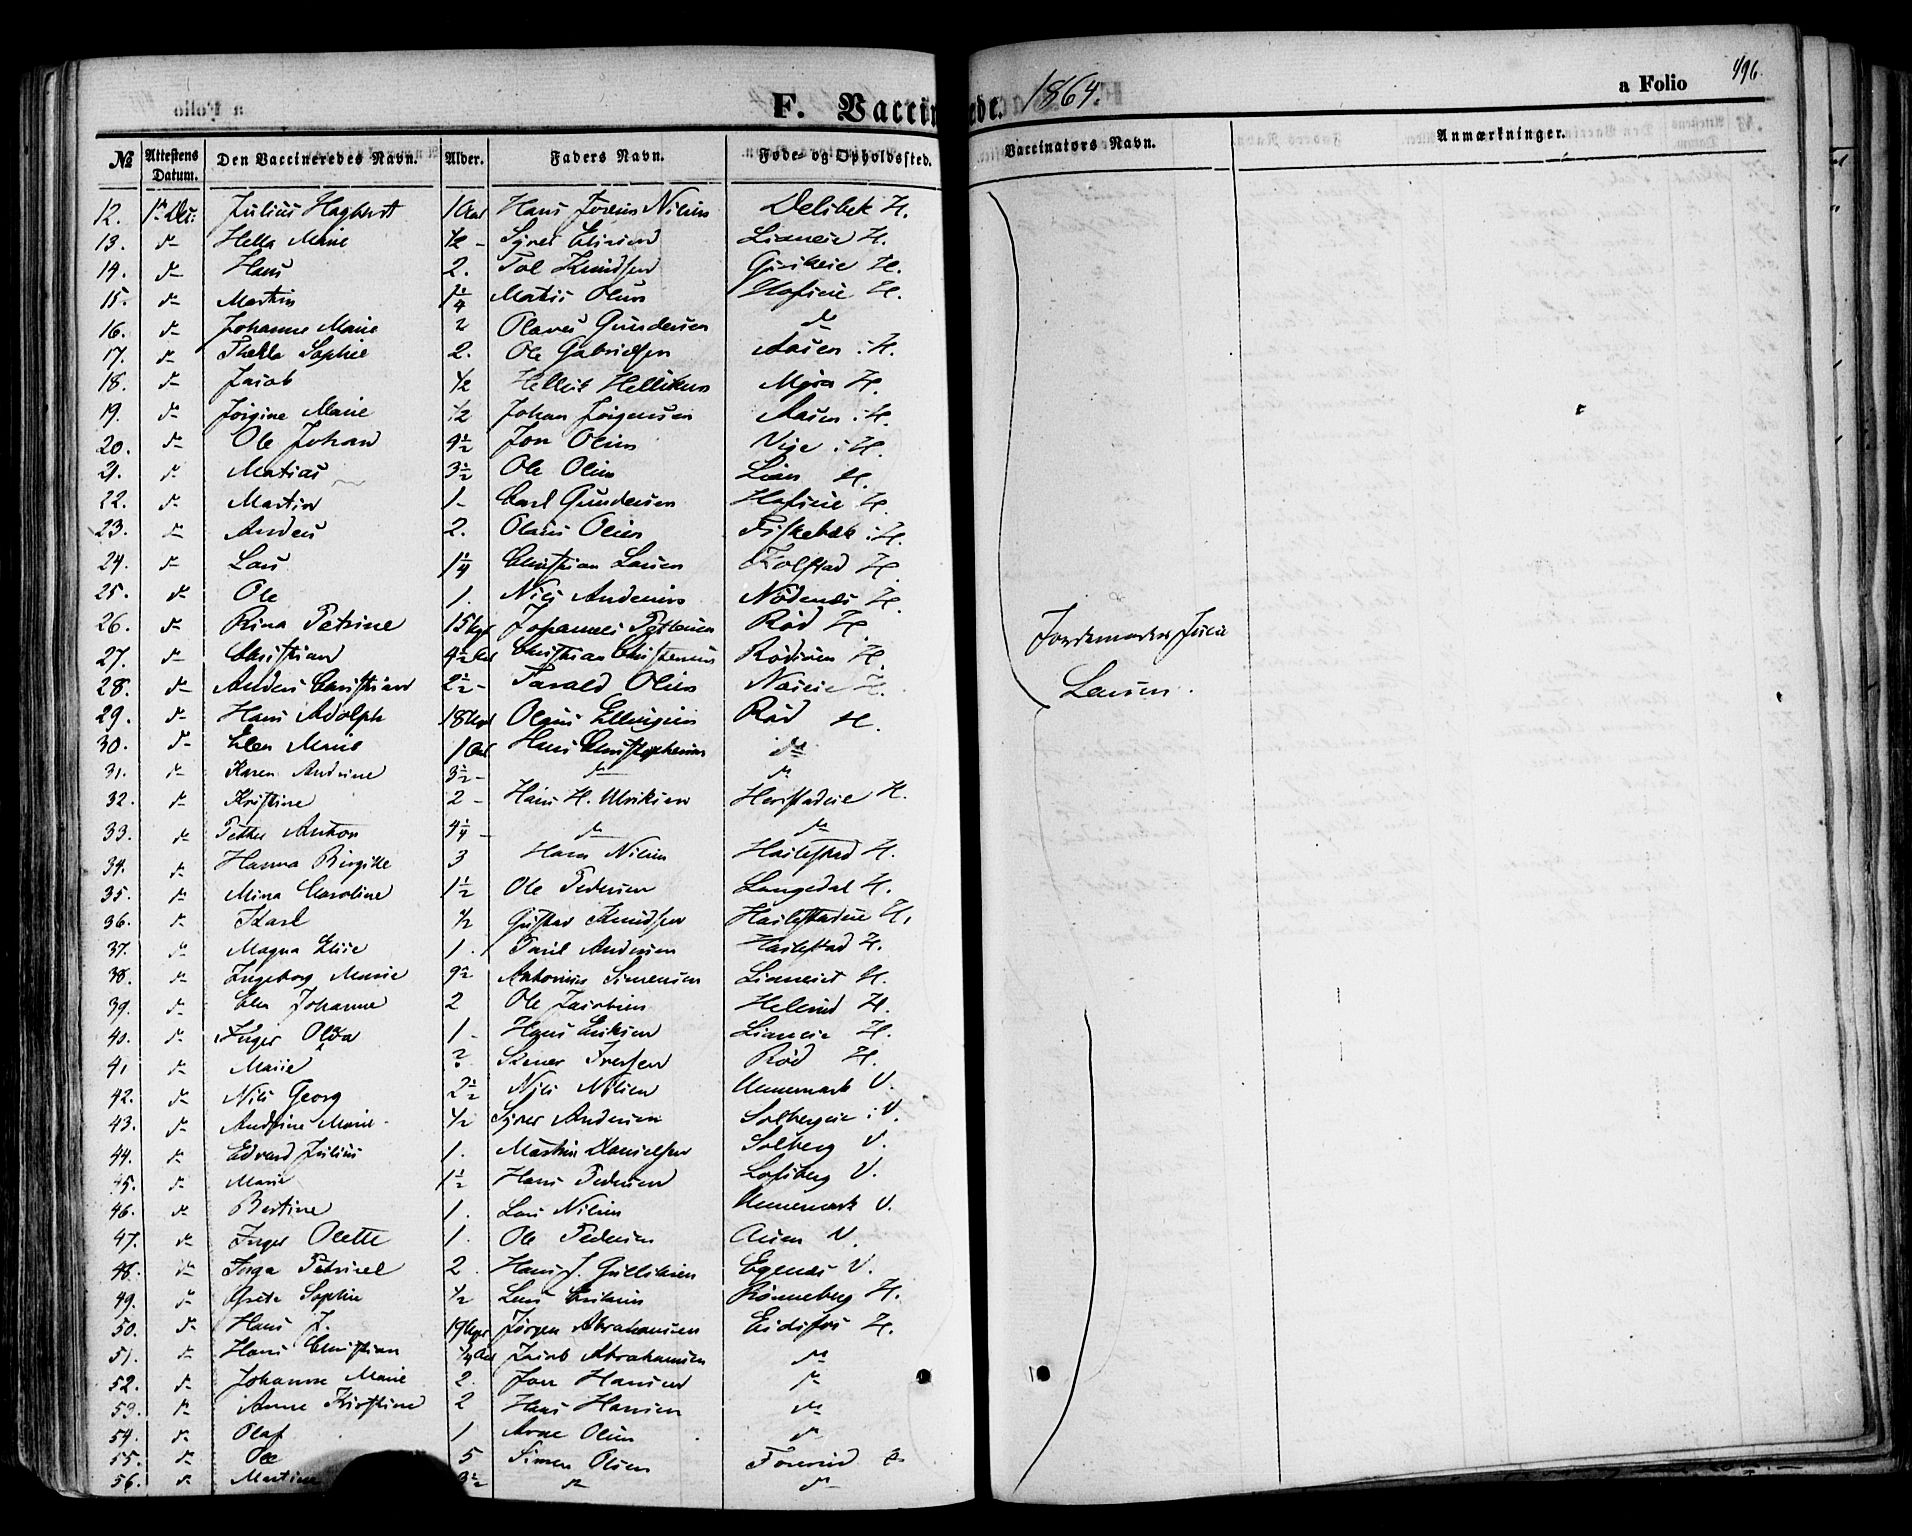 F. Vaccinerede. 1864. a Folio 496.
№ Attestens Datum. Den Vaccineredes Navn. Alder. Faders Navn. Føde- og Opholdssted. Vaccinators Navn. Anmærkninger.
12. Julius Hagbert 1 Aar Hans Nilsen H.
13. d– Hella Marie ½ – Syver Lianeie H.
14. d– Hans 2. Knudsen H.
15. d– Martin 1¼ Matis Olsen Hofseie H.
16. d– Johanne Marie 2 Olaves Gundersen d–
17. d– Thekla Sophie 2. Ole Gabrielsen Aasen i H.
18. d– Jacob ½ Hellik Helliksen Myra H.
19. d– Jørgine Marie ½ Johan Jørgensen Aasen i H.
20. d– Ole Johan 9½ Jon Olsen i H.
21. d– Matias 3½ Ole Olsen Lian H.
22. d– Martin 1 – Carl Gundersen Hofseie H.
23. d– Anders 2. Olaus Olsen Fiskebæk i H.
24. d– Lars 1¼ Christian Larsen Kolstad H.
25. d– Ole 1. Nils Andersen Nødenæs H.
26. d– Rina Petrine 15 Ugr Johannes Pettersen Rød H. Jordemoder
27. d– Christian 4½ Aar Christian Christensen H.
28. d– Anders Christian 2½ – Tarald Olsen Næseie H. Larsen.
29. d– Hans Adolph 18 Ugr Olaus Ellingsen Rød H.
30. d– Elen Marie 1 Aar Hans Christophersen d–
31. d– Karen Andrine 3½ – d– d–
32. d– Kristine 2 – Hans H. Ulriksen H.
33. d– Petter Anton 4¼ – d– d–
34. d– Hanna Birgitte 3 Hans Nilsen Hailestad H.
35. d– Mina Caroline 1½ Ole Pedersen Langedal H.
36. d– Karl ½ Gustav Knudsen Hailestadeie H.
37. d– Magna Elise 1. Andersen Hailestad H.
38. d– Ingeborg Marie 9½ Antonius Simensen H.
39. d– Elen Johanne 2 Ole Jacobsen H.
40. d– Inger Olava 1 – Hans Eriksen Lianeie H.
41 d– Marie Iversen Rød H.
42. d– Nils Georg 2½ Nils Nilsen Unnemark V.
43. d– Andrine Marie ½ Syver Andersen Solbergeie i V.
44. d– Edvard Julius 1. Martin Danielsen Solberg V.
45. d– Marie 1½ Hans Pedersen V.
46. d– Bertine 1. Lars Nilsen Unnemark V.
47. d– Inger Olette 1. Ole Pedersen Aasen V.
48. d– Inga 2. Hans J. Gulliksen Egenæs V.
49. d– Grete Sophie ½ Lars Eriksen Rønneberg H.
50. d– Hans J. 19 Ugr Jørgen Abrahamsen Eidsfos H.
51. d– Hans Christian ¼ Aar Jacob Abrahamsen d–
52. d– Johanne Marie 2. Jon Hansen d–
53. d– Anne Kirstine 2 Hans Hansen d–
54. d– Olaf 1 Arne Olsen d–
55. d– Ole 5 Simen Olsen
56. d– Martine 3½ d– d–